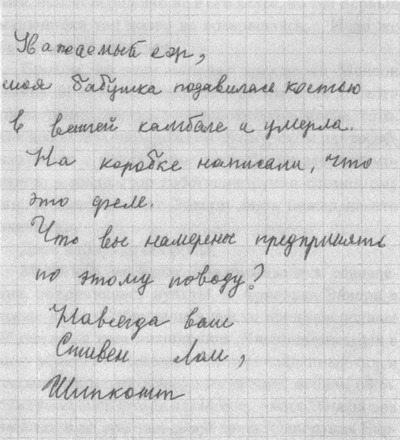 Уважаемый сэр,
моя бабушка подавилась костью
в вашей камбале и умерла.
На коробке написали, что
это филе.
Что вы намерены предпринять
по этому поводу?
Навсегда ваш
Стивен Лом,
Шипкотт